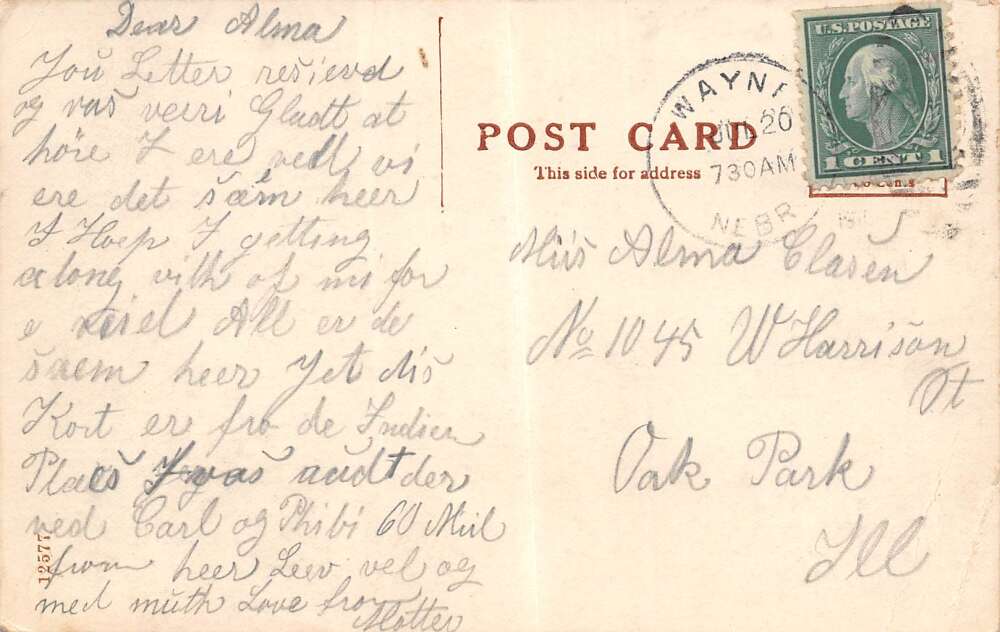 Dear Alma
You Letter resievd
og vas veeri Gladt at
höre I ere vell vi
ere det säm heer
I Hoep I getting
along vith of mi for
e All er de
säem heer Yet dis
Kort er fro de Indien
Placs I vas audt der
ved Carl og Phibi 60 Miil
from heer Leev vel og
med muth Love from
Motter
12577
POST CARD
This side for address
WAYNE
JUL 26
730AM
NEBR
U.S. POSTAGE
1 CENT 1
Miss Alma Clasen
No 1045 W Harrison
St
Oak Park
Ill